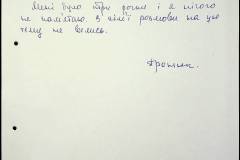 Мені було три роки і я нічого
не пам'ятаю. В сім'ї розмови на цю
тему не велись.